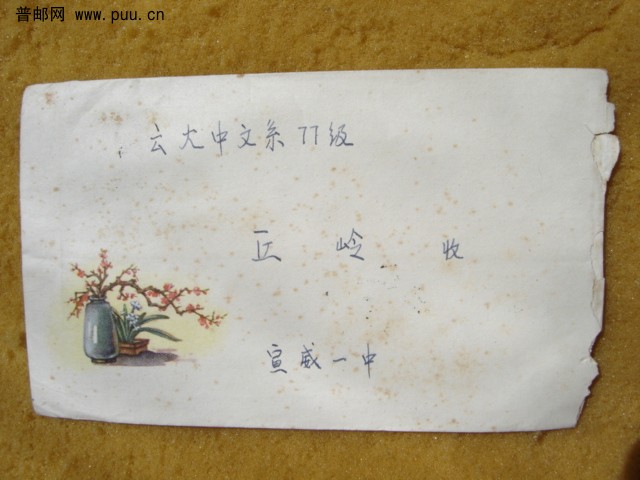 普邮网 www.puu.cn
云大中文系77级
丘岭 收
宣威一中